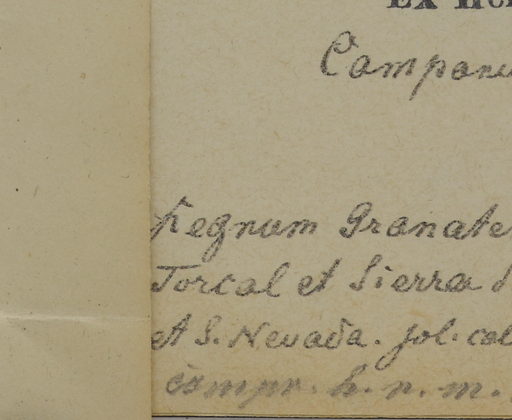 Ex Her
Campanu
Regnum Granate
Torcal et Sierra d
et S. Nevada. Sol. cal
compr. h. n. m.